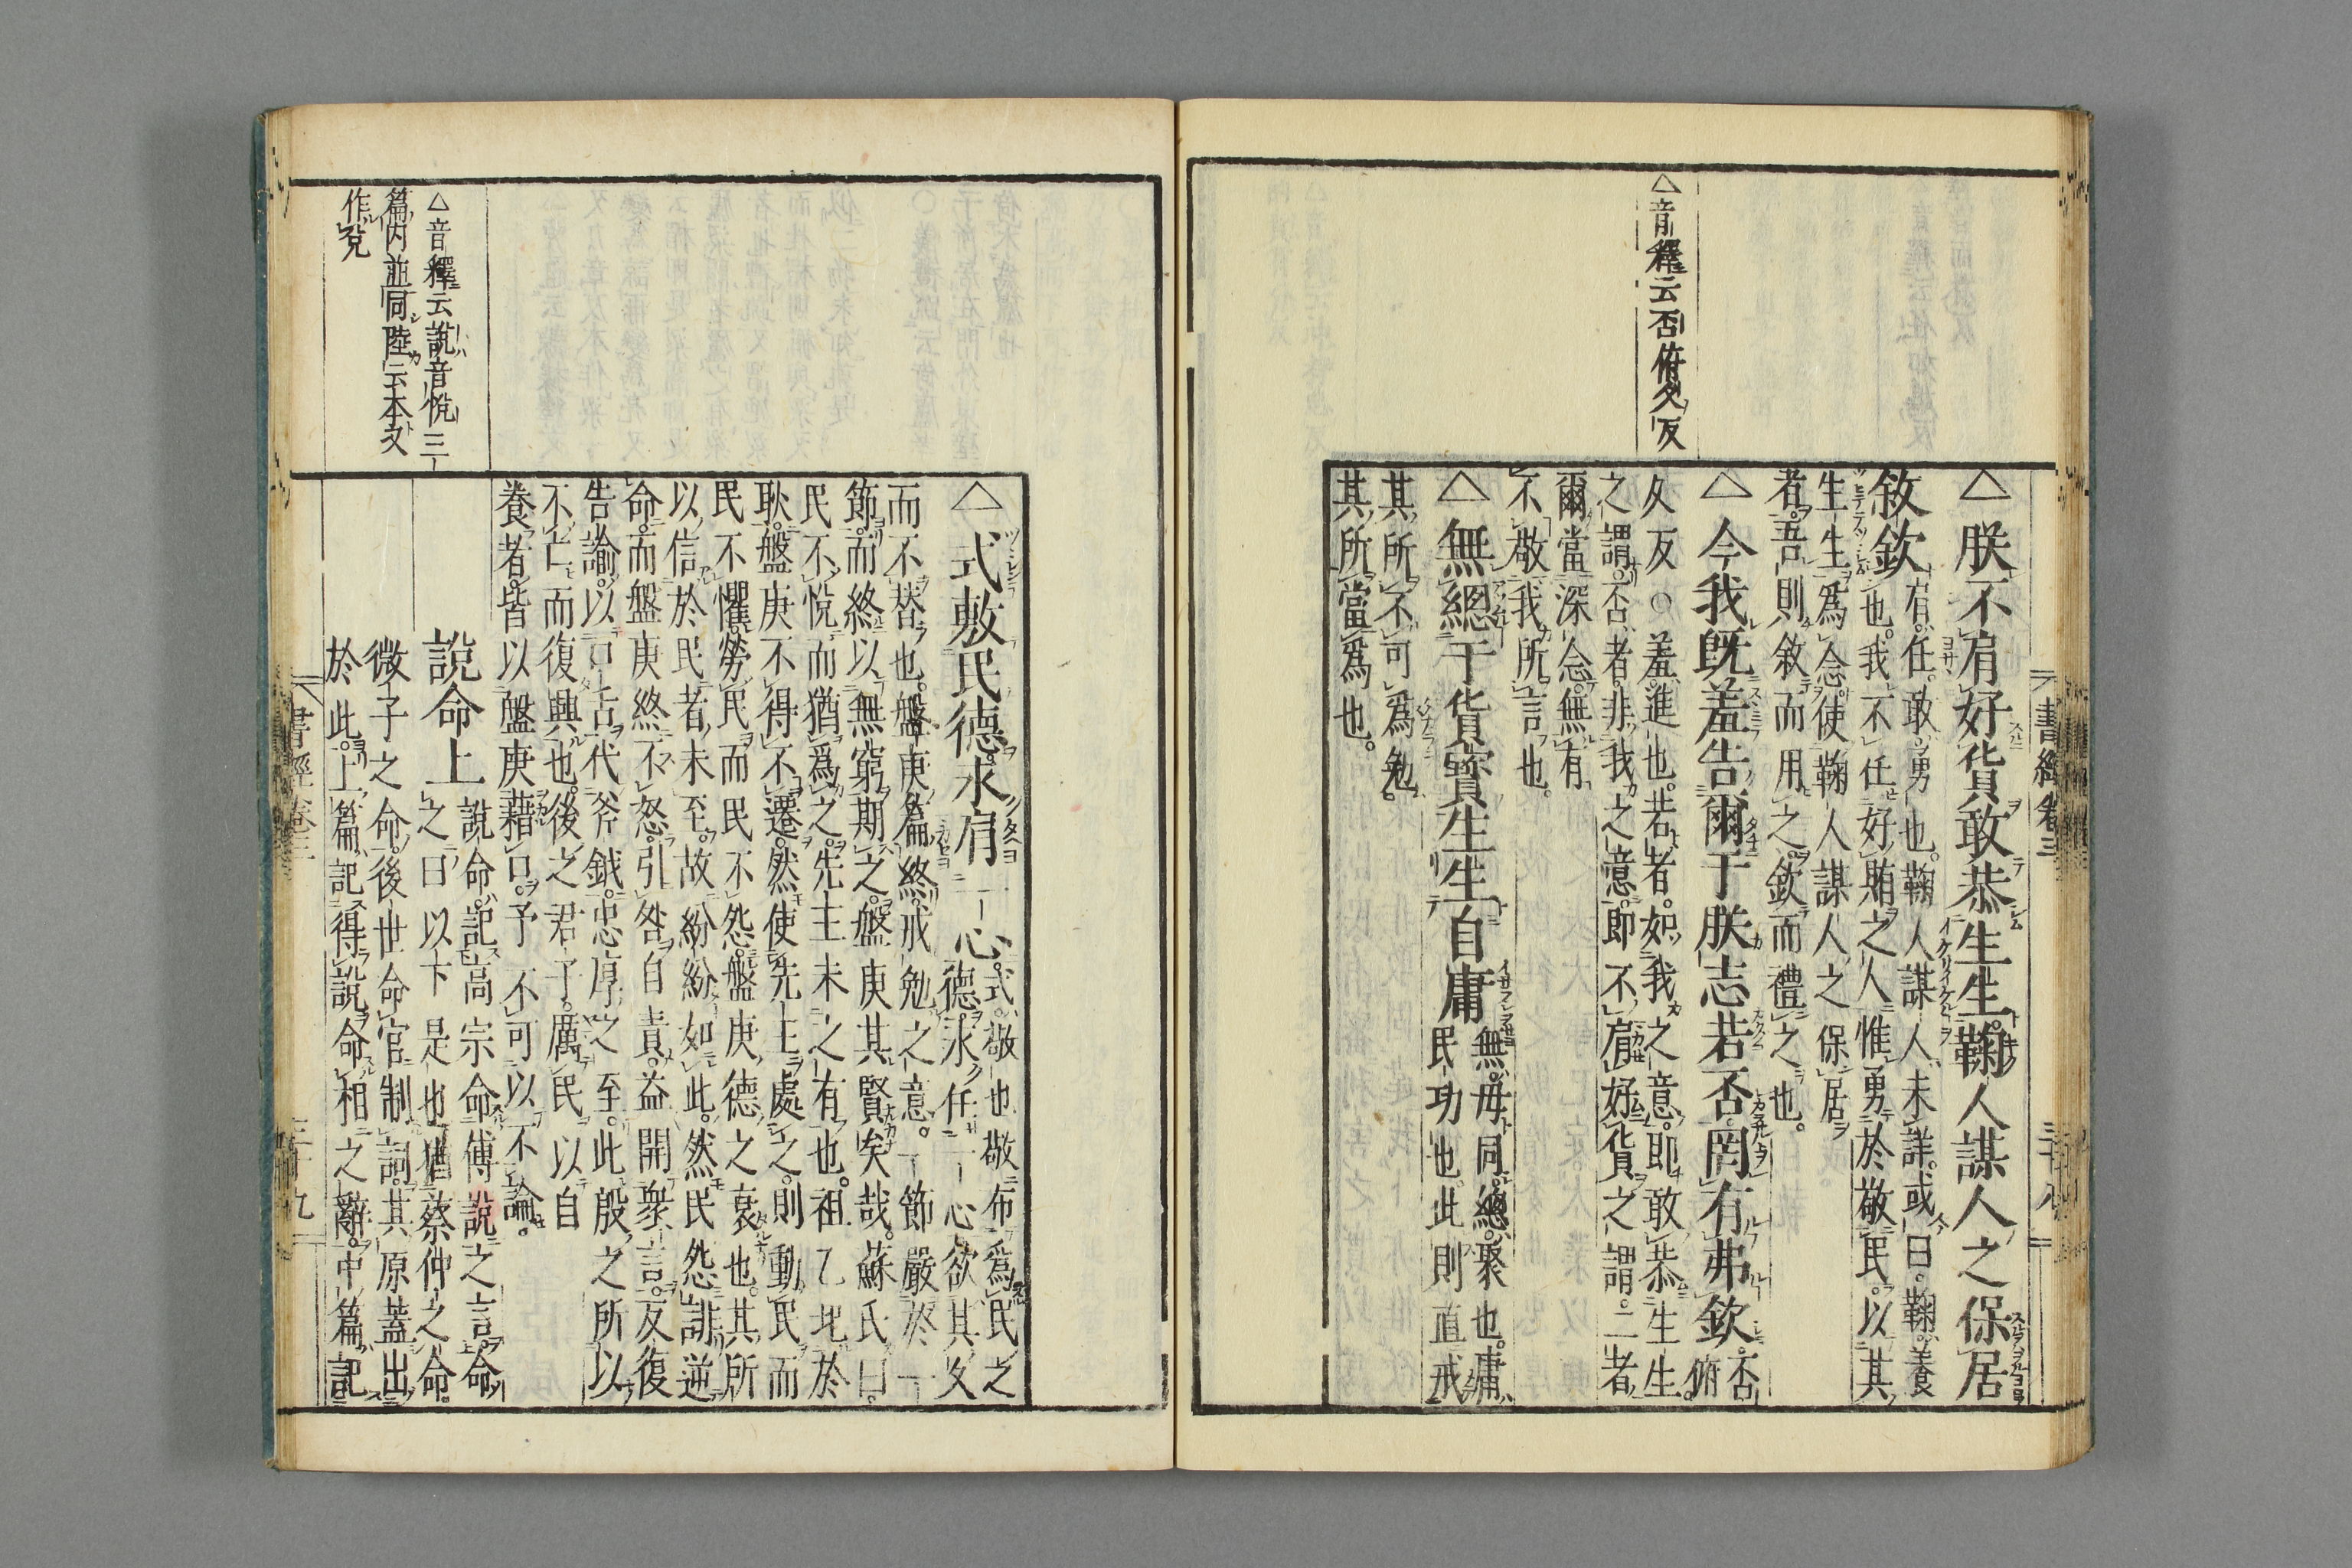 書經卷三
三十八
△音釋云否俯久反
△朕不肩好貨敢恭生生鞠人謀人之保居
敘欽
肩任敢勇也鞠人謀人未詳或曰鞠養
也我不任好賄之人惟勇於敬民以其
生生爲念使鞠人謀人之保居
者吾則敘而用之欽而禮之也
△今我既羞告爾于朕志若否罔有弗欽
否俯
久反○羞進也若者如我之意即敢恭生生
之謂否者非我之意即不肩好貨之謂二者
爾當深念無有
不敬我所言也
△無總于貨寶生生自庸
無毋同總聚也庸
民功也此則直戒
其所不可爲勉
其所當爲也
△音釋云說音悅三
篇内並同陸云本又
作兌
△式敷民德永肩一心
式敬也敬布爲民之
德永任一心欲其久
而不替也盤庚篇終戒勉之意一節嚴於一
節而終以無窮期之盤庚其賢矣哉蘇氏曰
民不悅而猶爲之先王未之有也祖乙圯於
耿盤庚不得不遷然使先王處之則動民而
民不懼勞民而民不怨盤庚德之衰也其所
以信於民者未至故紛紛如此然民怨誹逆
命而盤庚終不怒引咎自責益開衆言反復
告諭以口舌代斧鉞忠厚之至此殷之所以
不亡而復興也後之君子厲民以自
養者皆以盤庚藉口予不可以不論
說命上
說命記高宗命傅說之言命
之曰以下是也猶蔡仲之命
微子之命後世命官制詞其原蓋出
於此上篇記得說命相之辭中篇記
書經卷三
三十九